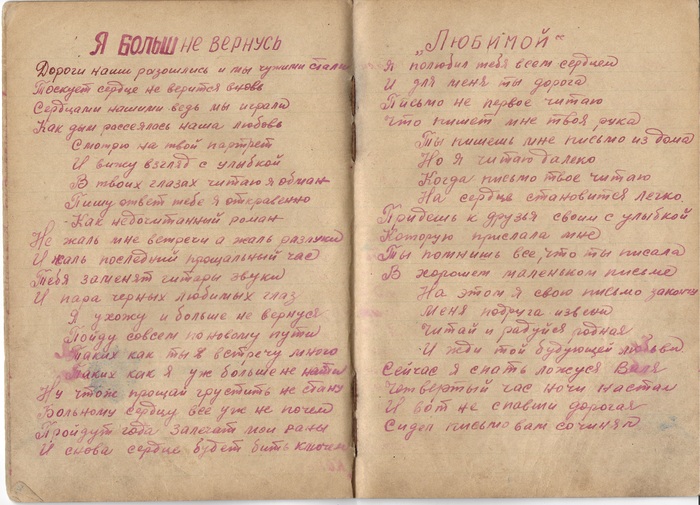 Я БОЛЬШ НЕ ВЕРНУСЬ
Дороги наши разошлись и ты чужими стали
Тоскует сердце не верится вновь
Сердцами нашими ведь мы играли
Как дым россеялось наша любовь
Смотрю на твой партрет
И вижу взгляд с улыбкой
В твоих глазах читаю я обман
Пишу ответ тебе я откравенно
Как недочитанный роман
Не жаль мне встречи а жаль разлуки
И жаль последний прощальный час
Тебя заменят гитары звуки
И пара черных любимых глаз
Я ухожу и больше не вернуся
Пойду совсем по новому пути
Таких как ты я встречу много
Таких как я уж больше не найти
Ну чтоже прощай грустить не стану
Больному сердцу всё уж не почем
Пройдут года залечат мои раны
И снова сердце будет бить ключем
„ЛЮБИМОЙ"
Я полюбил тебя всем сердцем
И для меня ты дорога
Письмо не первое читаю
Что пишет мне твоя рука
Ты пишешь мне письмо из дома
Но я читаю далеко
Когда письмо твое читаю
На сердце становится легко.
Придешь к друзья своим с улыбкой
Которую прислала мне
Ты помнишь все, что ты писала
В хорошем маленьком письме
На этом я свою письмо закончу
Меня подруга извени
Читай и радуйся родная
И жди той будующей любви
Сейчас я спать ложуся Валя
Четвертый час ночи настал
И вот не спавший дорогая
Сидел письмо вам сочинял